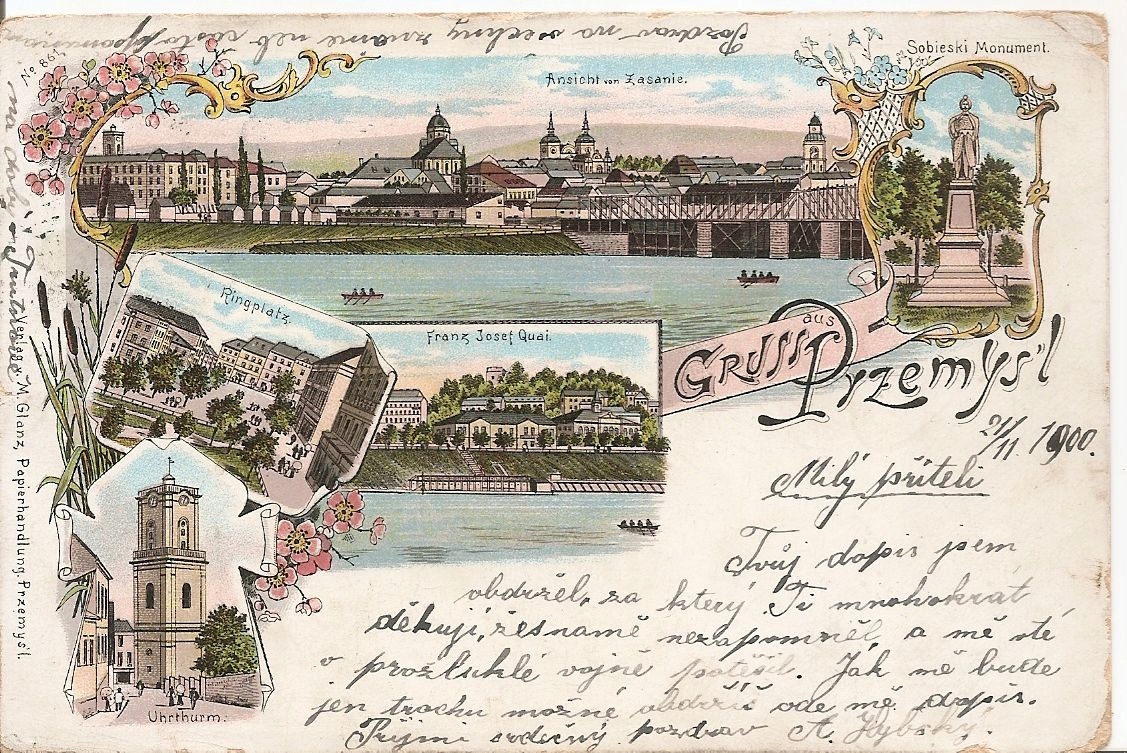 Pozdrav na všechny známé neb
No 86
Ansicht von Zasanie.
Sobieski Monument.
Ringplatz.
Franz Josef Quai.
Gruss aus Przemyśl
Uhrthurm.
Verlag v. M. Glanz, Papierhandlung, Przemyśl.
21/11 1900.
Milý příteli
Tvůj dopis jsem
obdržel, za který Ti mnohokrát
děkuji, žes na mě nezapomněl, a mě
v vojně potěšil. Jak mě bude
jen trochu možné obdržíš ode mě dopis.
Přijmi srdečný pozdrav A.